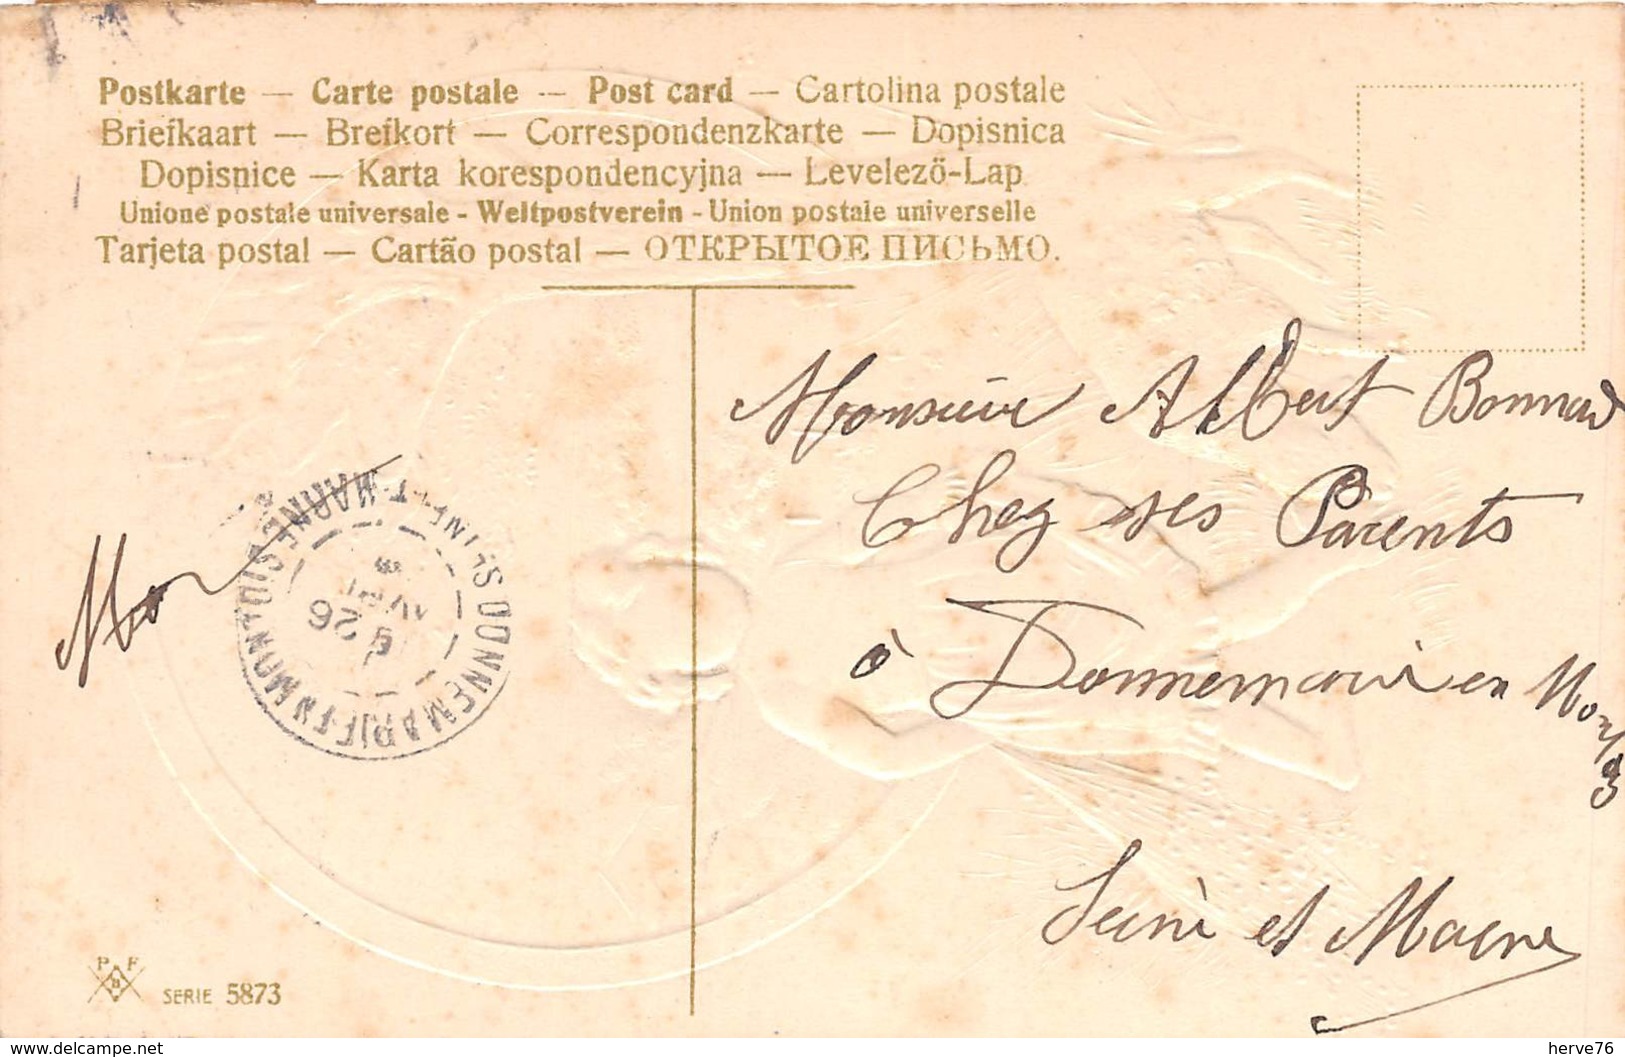 Postkarte — Carte postale — Post card — Cartolina postale
Briefkaart — Brefkort — Correspondenzkarte — Dopisnica
Dopisnice — Karta korespondencyjna — Levelezö-Lap
Unione postale universale - Weltpostverein - Union postale universelle
Tarjeta postal — Cartão postal — ОТКРЫТОЕ ПИСЬМО.
Monsieur Albert Bonnard
Chez ses Parents
à Donnemarie en Mont
Seine et Marne
DONNEMARIE-EN-MONTOIS SEINE-ET-MARNE
26
P F
B
SERIE 5873
delcampe.net
herve76